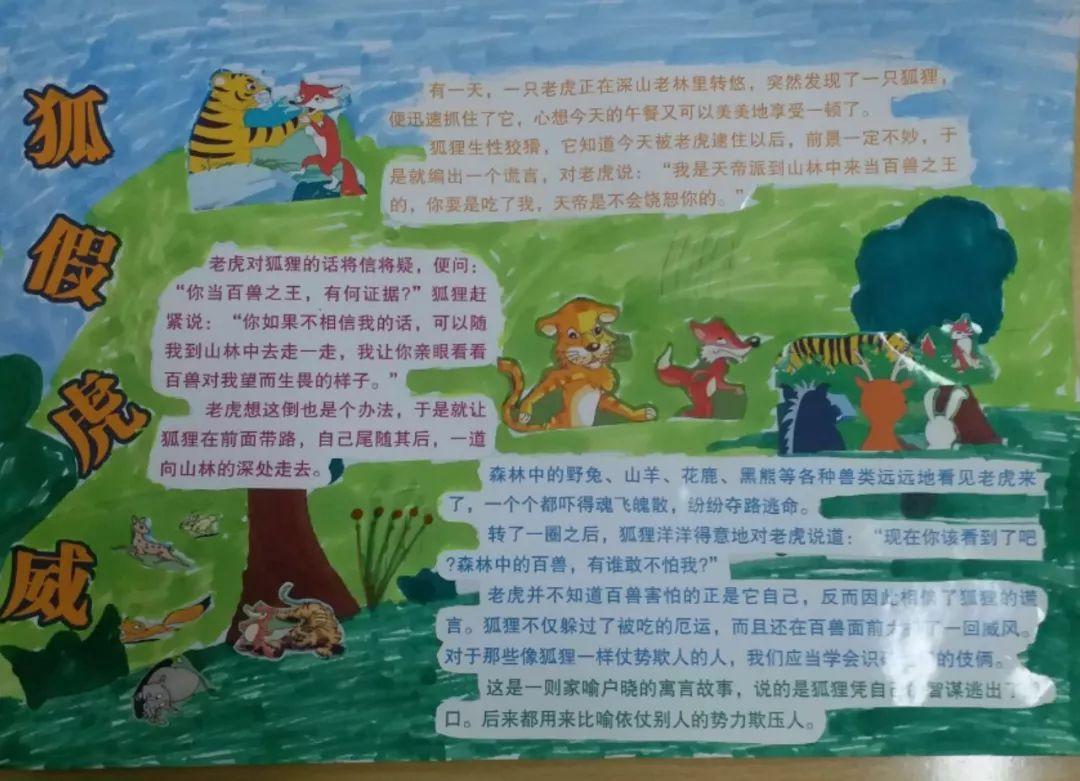 狐假虎威
有一天，一只老虎正在深山老林里转悠，突然发现了一只狐狸，
便迅速抓住了它，心想今天的午餐又可以美美地享受一顿了。
狐狸生性狡猾，它知道今天被老虎逮住以后，前景一定不妙，于
是就编出一个谎言，对老虎说：“我是天帝派到山林中来当百兽之王
的，你要是吃了我，天帝是不会饶恕你的。”
老虎对狐狸的话将信将疑，便问：
“你当百兽之王，有何证据?”狐狸赶
紧说：“你如果不相信我的话，可以随
我到山林中去走一走，我让你亲眼看看
百兽对我望而生畏的样子。”
老虎想这倒也是个办法，于是就让
狐狸在前面带路，自己尾随其后，一道
向山林的深处走去。
森林中的野兔、山羊、花鹿、黑熊等各种兽类远远地看见老虎来
了，一个个都吓得魂飞魄散，纷纷夺路逃命。
转了一圈之后，狐狸洋洋得意地对老虎说道：“现在你该看到了吧
?森林中的百兽，有谁敢不怕我?”
老虎并不知道百兽害怕的正是它自己，反而因此相信了狐狸的谎
言。狐狸不仅躲过了被吃的厄运，而且还在百兽面前大 了一回威风。
对于那些像狐狸一样仗势欺人的人，我们应当学会识 的伎俩。
这是一则家喻户晓的寓言故事，说的是狐狸凭自己 智谋逃出了
口。后来都用来比喻依仗别人的势力欺压人。